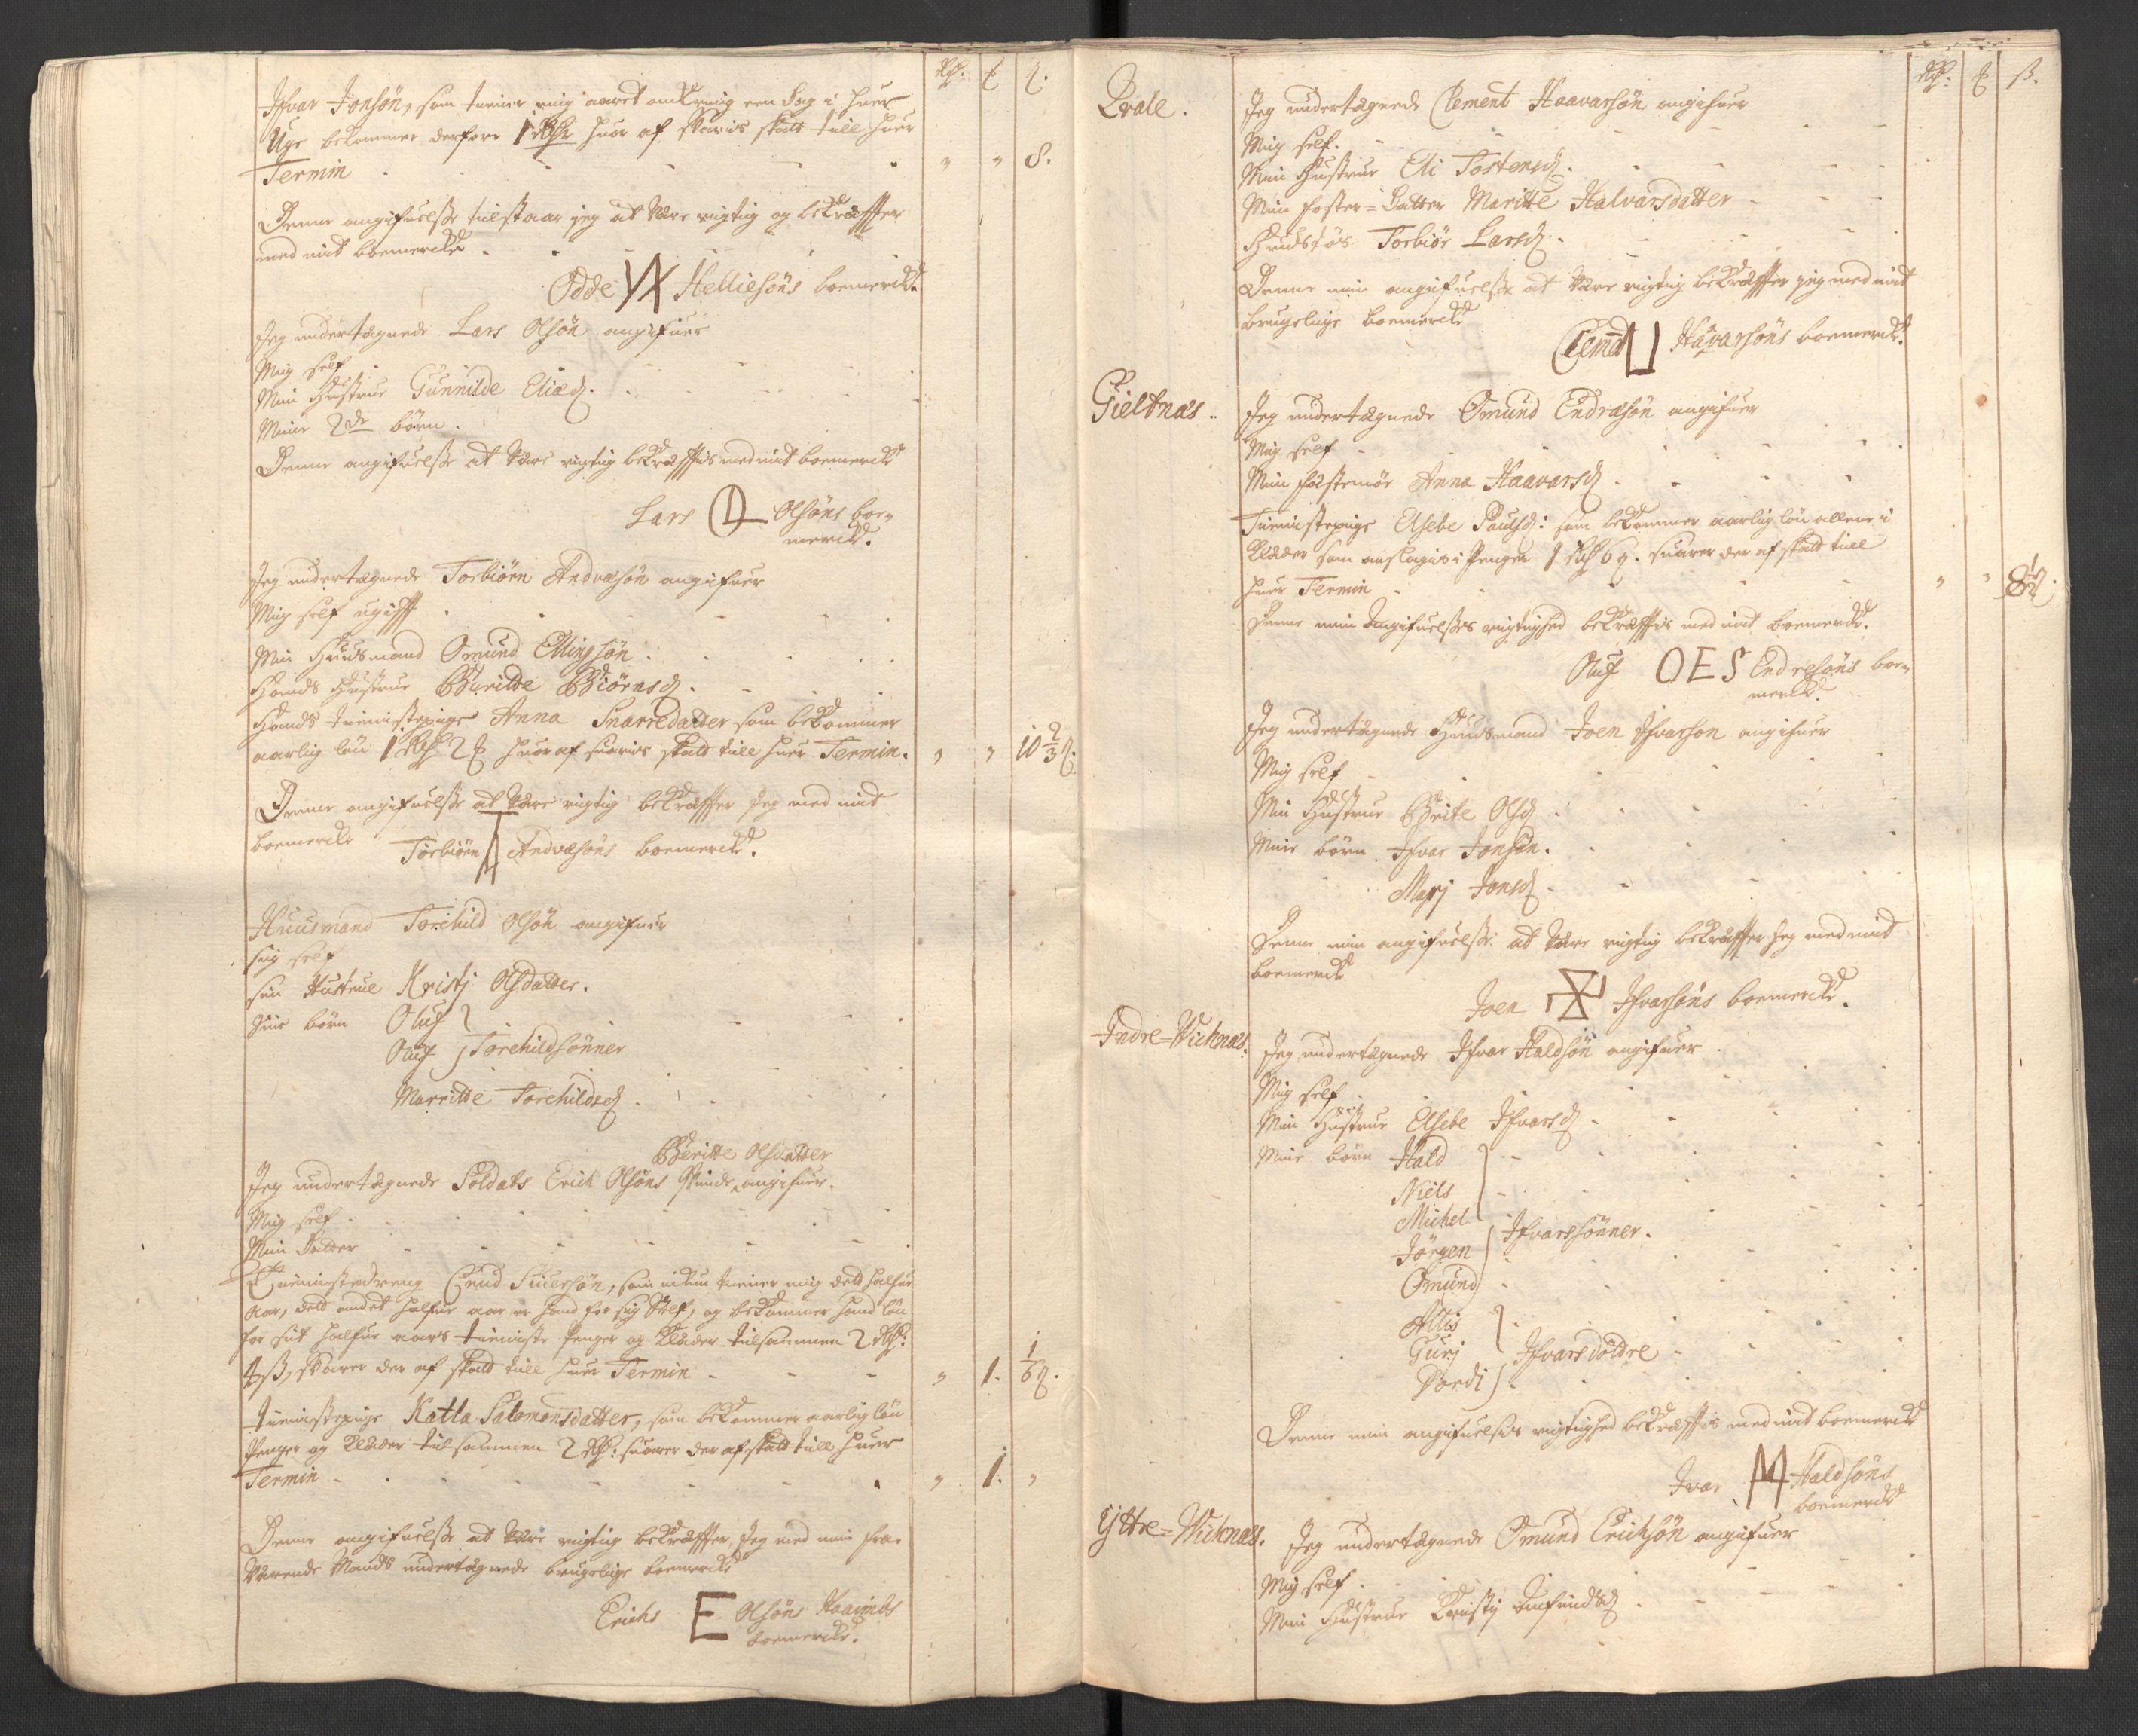 Rdr. ₤ ß.
Ifvar Jonsøn, som tiener mig aaret omkring een dag i huer
Uge bekommer derfore 1 Rdr huor af svaris skatt till huer
Termin " " 8.
Denne angifuelse tilstaar jeg at være rigtig og bekræffter
med mit boemercke.
Odde Helliesøns boemercke.
Jeg undertegnede Lars Olsøn angifuer
Mig self
Min Hustrue Gunnilde Eliæd.
Mine 2de børn.
Denne angifuelse at være rigtig bekræfftis med mit boemercke
Lars Olsøns boe-
mercke.
Jeg undertegnede Torbiørn Andvæsøn angifuer
Mig self ugifft
Min Huusmand Omund Ellingsøn
Hands Hustrue Burilde Biørnsd.
Hands tienistepige Anna Snarredatter som bekommer
aarlig løn 1 Rdr 2 ₤ huoraf suaris skatt till huer Termin. " " 10 2/3 ß.
Denne angifuelse at være rigtig bekræffter Jeg med mit
boemercke Torbiørn Andvæsøns boemercke.
Huusmand Torchild Olsøn angifuer
sig self
sin Hustrue Kristj Olsdatter.
Sine børn Oluf
Oluf Torchildsønner
Marritte Torchildsd.
Beritte Olsdatter
Jeg undertegnede Soldats Erich Olsøns Quinde angifuer.
Mig self
Min datter
Tienistedreng Cnud Siuersøn, som ickun tiener mig deld halfue
aar, deld andet halfue aar er hand for sig self, og bekommer hand løn
for sit halfue aars tieniste Penger og Klæder tilsammen 2 Rdr.
4 ß, svarer der af skatt till huer Termin " 1. 1/6 ß.
Tienistepige Katla Salomonsdatter, som bekommer aarlig løn
Penger og Klæder tilsammen 2 Rdr: suarer der af skatt till huer
Termin " 1. "
Denne angifuelse at være rigtig bekræffter Jeg med min fra-
værende Mands undertegnede brugelige boemercke
Erichs E Olsøns Haanids
boemercke.
Rdr. ₤ ß.
Qvale. Jeg undertegnede Clement Haavarsøn angifuer
Mig self.
Min Hustrue Eli Tostensd.
Min foster-Datter Maritte Halvarsdatter
Huustøs Torbiør Larsd.
Denne min angifuelse at være rigtig bekræffter jeg med mit
brugelige boemercke
Clemt Håvarsøns boemercke.
Gieltnæs. Jeg undertegnede Omund Endræsøn angifuer
Mig self
Min festemøe Anna Haavarsd
Tienistepige Elsebe Paulsd: som bekommer aarlig løn allene i
Klæder som anslagis i Penger 1 Rdr 6 ß. suarer der af skatt till
huer Termin " " 8 1/2 ß.
Denne min Angifuelses rigtighed bekræfftis med mit boemercke.
Oluf OES Endresøns boe-
mercke
Jeg undertegnede Huusmand Joen Ifvarson angifuer
Mig self
Min Hustrue Brite Olsd
Mine børn Ifvar Jonsøn.
Marj Jonsd
Denne min angifuelse at være rigtig bekræffter Jeg med mit
boemercke
Joen Ifvarsøns boemercke.
Indre-Vicknæs. Jeg undertegnede Ifvar Haldsøn angifuer
Mig self
Min Hustrue Elsebe Ifvarsd
Mine børn Hald
Niels
Michel
Jørgen Ifvarssønner.
Omund
Altis
Gurj Ifvarsdøttre
Vordi
Denne min angifuelses rigtighed bekræfftis med mit boemercke
Ivar Haldsøns
boemercke
Yttre-Vicknæs. Jeg undertegnede Omund Erichsøn angifuer
Mig self.
Min Hustrue Kristj Amfindsd